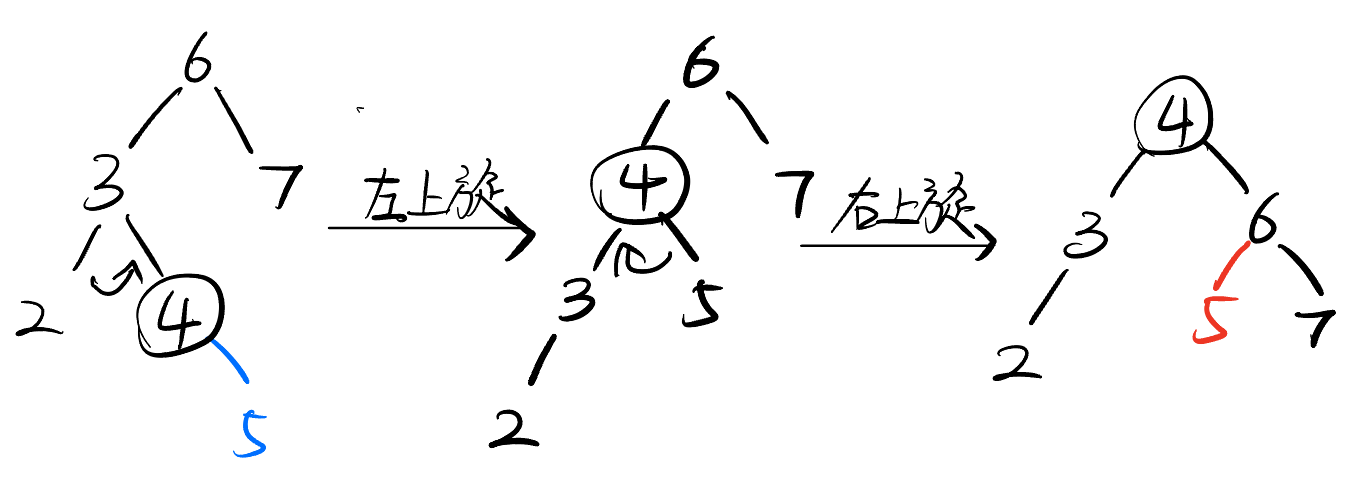 6
3 7
2 4
5
左上旋
6
4 7
3 5
2
右上旋
4
3 6
5 7
2